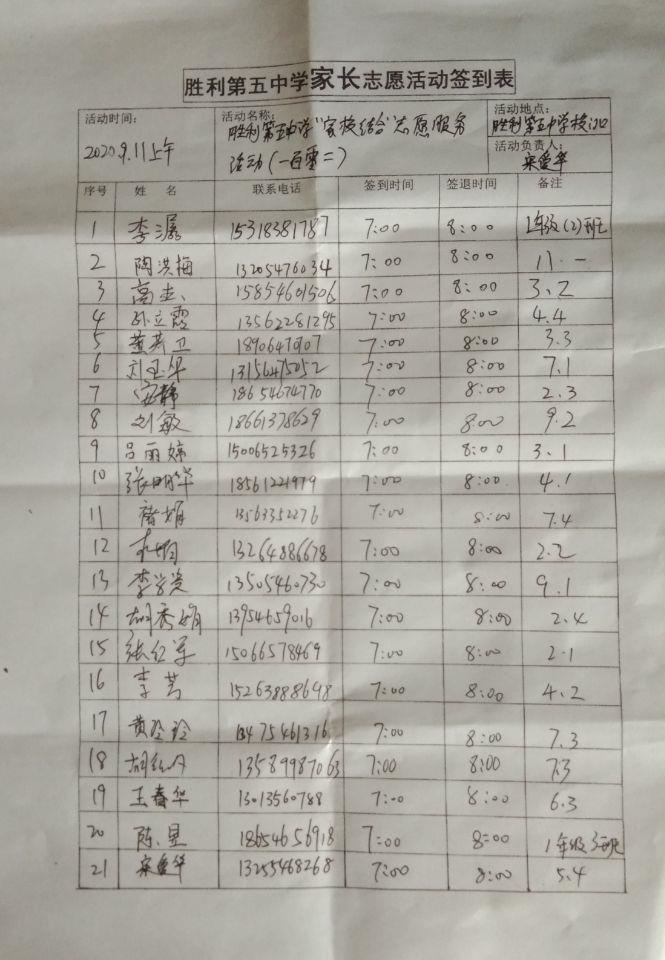 胜利第五中学家长志愿活动签到表
活动时间: 2020.9.11上午
活动名称: 胜利第五中学"家校结合"志愿服务活动(一百零二)
活动地点: 胜利第五中学校门口
活动负责人: 宋爱华
序号 姓 名 联系电话 签到时间 签退时间 备注
1 李潺 15318381787 7:00 8:00 1年级(2)班
2 陶洪梅 13205476034 7:00 8:00 11.一
3 15854601506 7:00 8:00 3.2
4 孙立霞 13562281295 7:00 8:00 4.4
5 董英卫 7:00 8:00 3.3
6 刘玉华 13156475052 7:00 8:00 7.1
7 安静 18654674770 7:00 8:00 2.3
8 刘敏 18661378629 7:00 8:00 9.2
9 吕丽婷 15006525326 7:00 8:00 3.1
10 张明华 18561221979 7:00 8:00 4.1
11 13563352276 7:00 8:00 7.4
12 13264886678 7:00 8:00 2.2
13 13505460730 7:00 8:00 9.1
14 胡秀娟 13954659016 7:00 8:00 2.4
15 张红军 15066578469 7:00 8:00 2.1
16 李芳 15263888698 7:00 8:00 4.2
17 黄玲玲 13475461316 7:00 8:00 7.3
18 13589987063 7:00 8:00 7.3
19 王春华 13013560788 7:00 8:00 6.3
20 陈昱 18654656918 7:00 8:00 1年级3班
21 宋爱华 13255468268 7:00 8:00 5.4